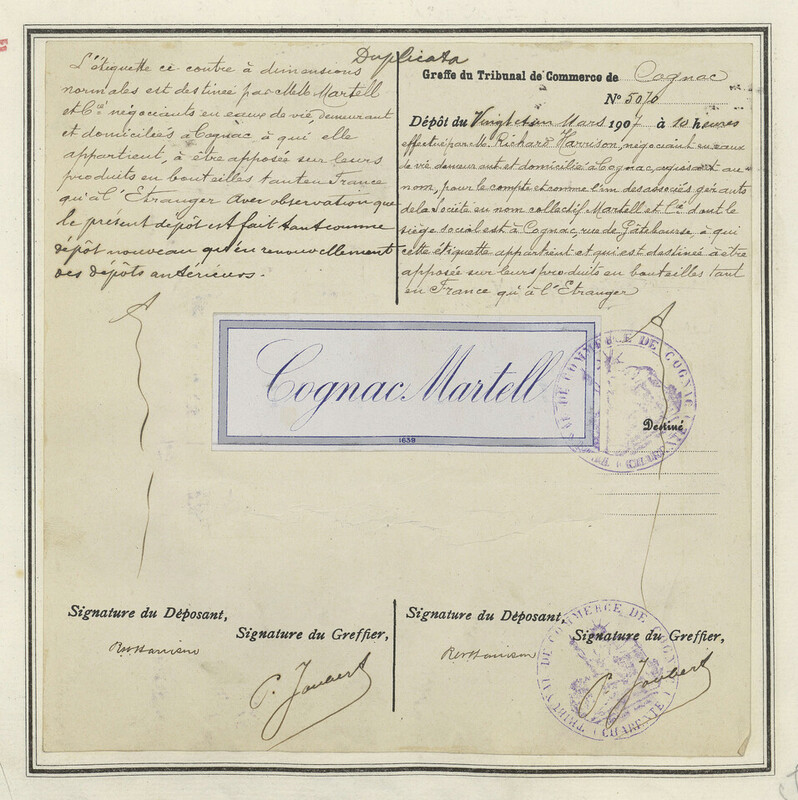 Duplicata
L'étiquette ci contre à dimensions
normales est destinée par MM Martell
et Cie négociants en eaux de vie demeurant
et domiciliés à Cognac à qui elle
appartient, à être apposée sur leurs
produits en bouteilles tant en France
qu'à l'Etranger avec observation que
le présent dépôt est fait tant comme
dépôt nouveau qu'en renouvellement
des dépôts antérieurs.
Greffe du Tribunal de Commerce de Cognac
N° 5070
Dépôt du Vingt et un Mars 1907 à 10 heures
effectué par M. Richard Harrison, négociant en eaux
de vie demeurant et domicilié à Cognac, agissant au
nom, pour le compte et comme l'un des associés gérants
de la Société en nom collectif Martell et Cie dont le
siège social est à Cognac, rue de Gâtebourse, à qui
cette étiquette appartient et qui est destinée à être
apposée sur leurs produits en bouteilles tant
en France qu'à l'Etranger
Cognac Martell
1639
TRIBUNAL DE COMMERCE DE COGNAC
Destiné
Signature du Déposant,
Signature du Greffier,
P. Joubert
Signature du Déposant,
Signature du Greffier,
P. Joubert
TRIBUNAL DE COMMERCE DE COGNAC
(CHARENTE)